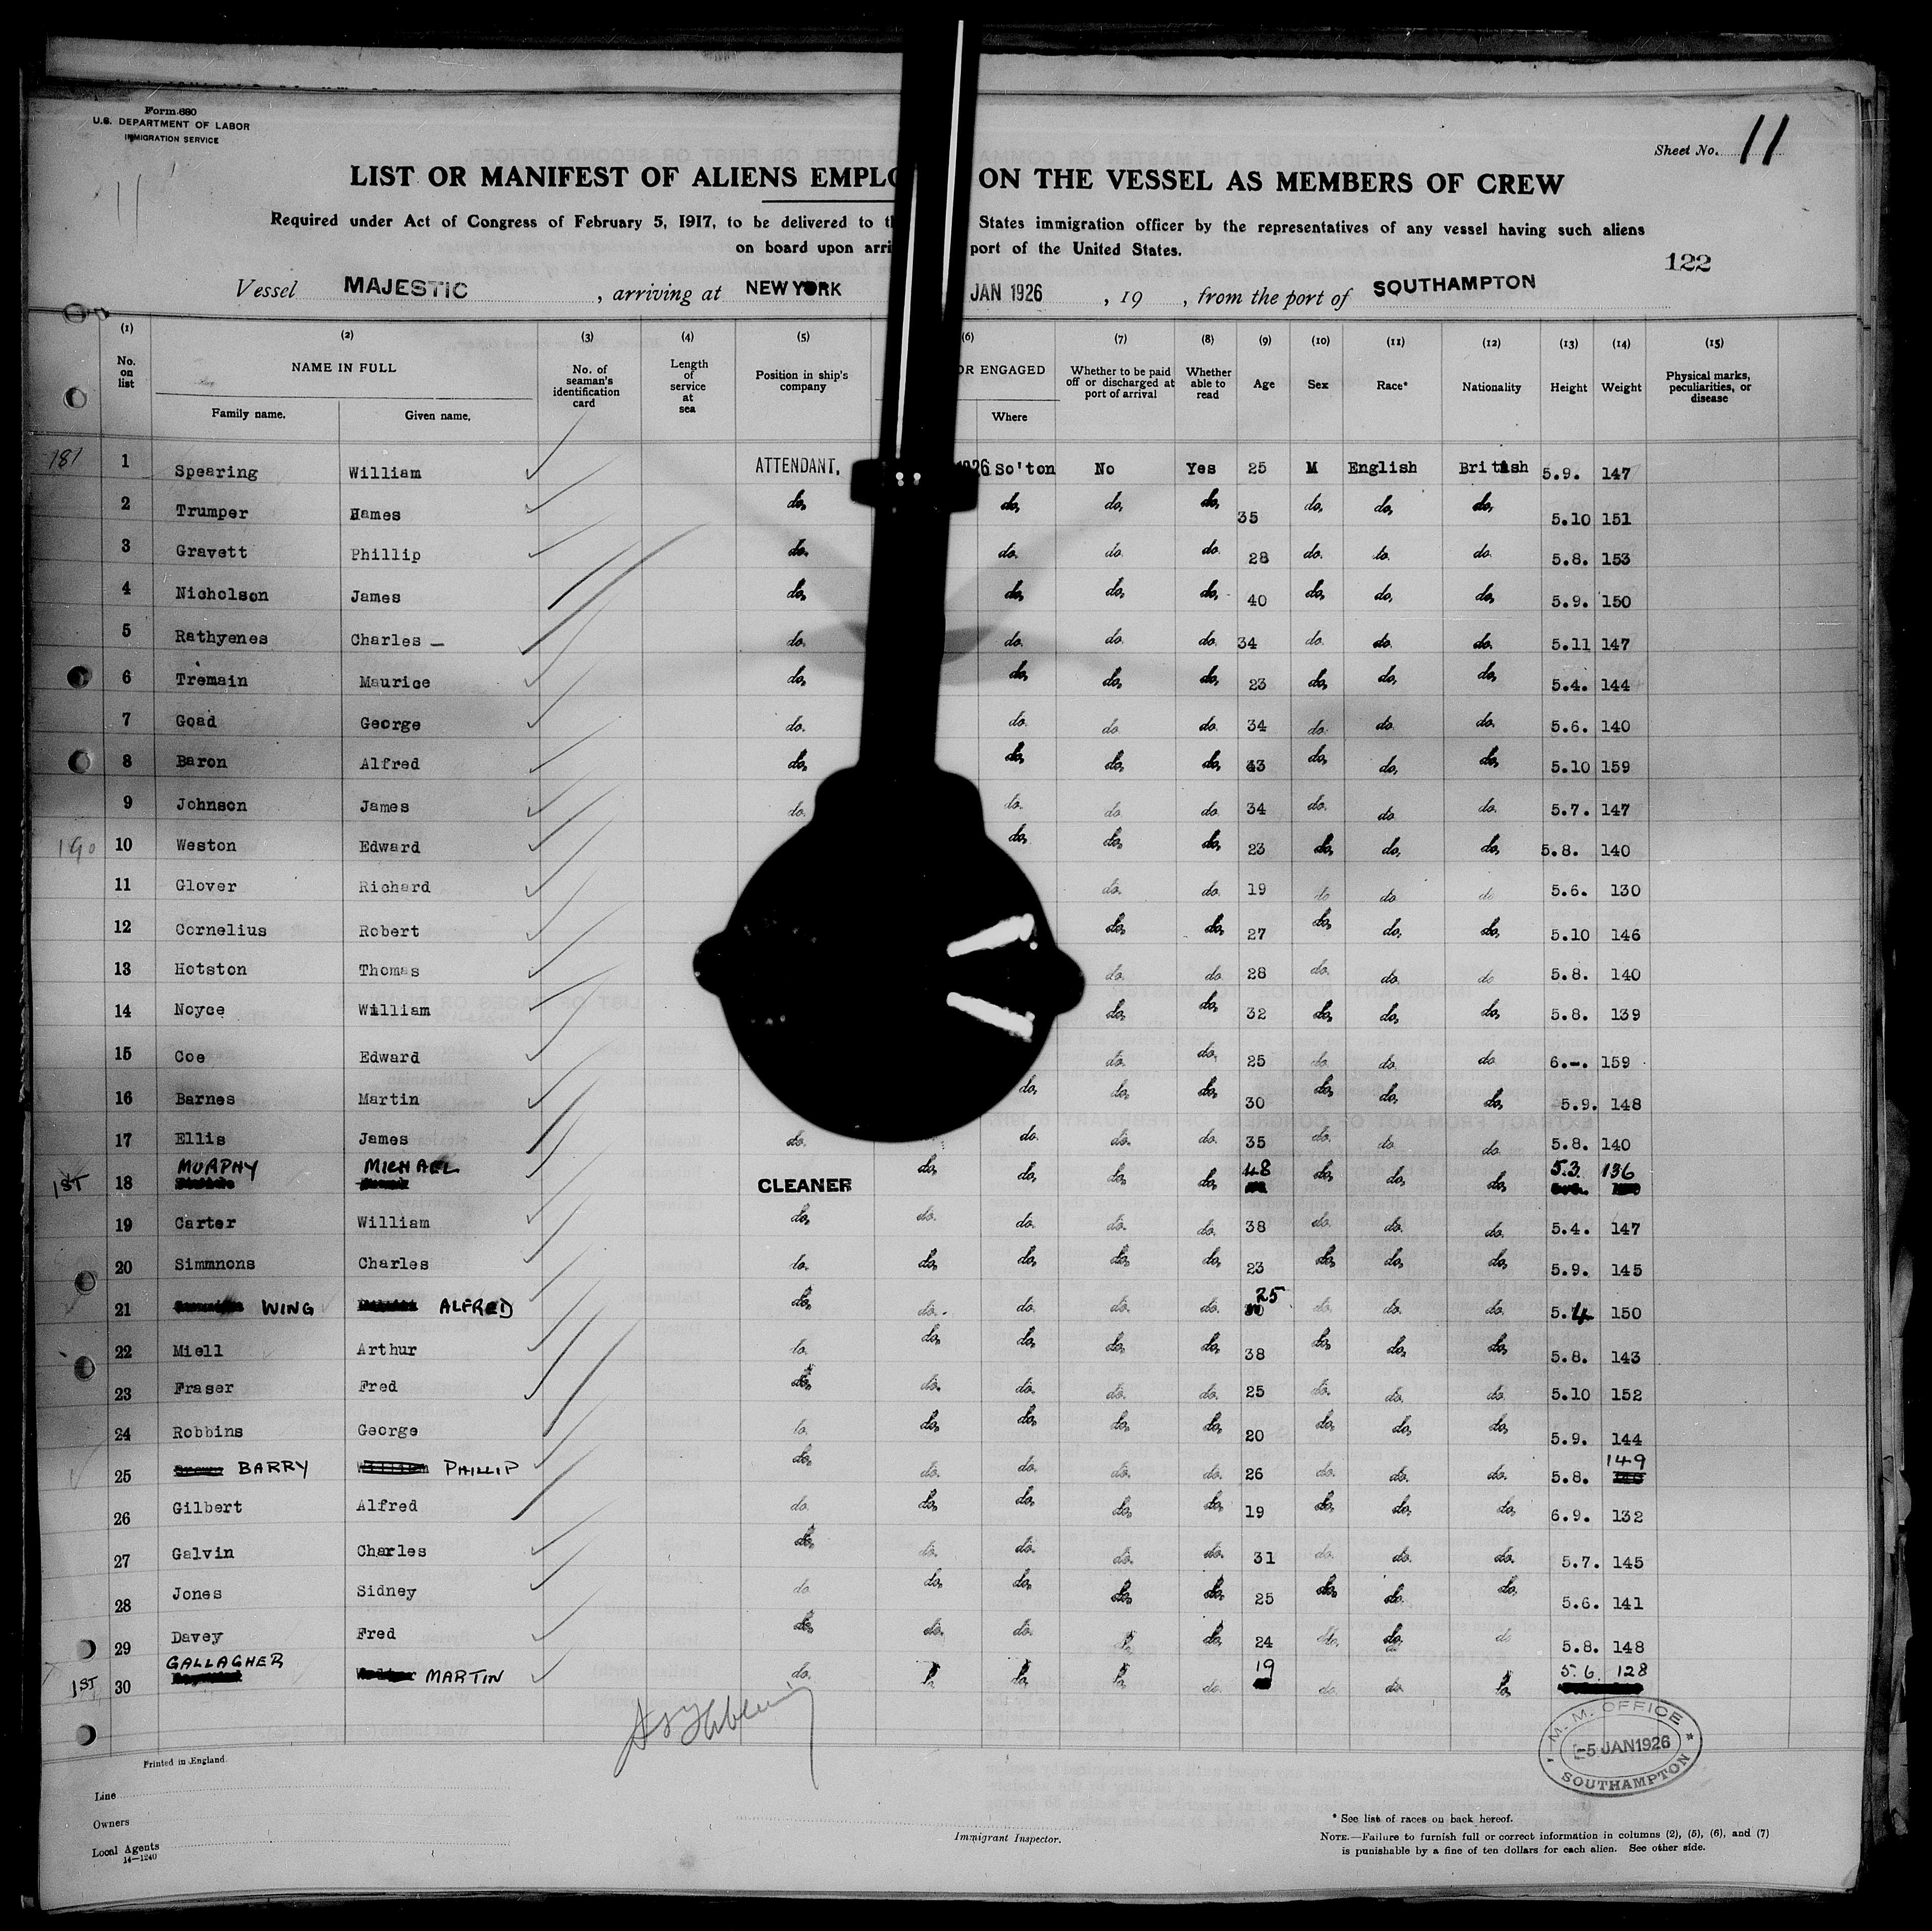 Form 680
U.S. DEPARTMENT OF LABOR
IMMIGRATION SERVICE
Sheet No. 11
11
LIST OR MANIFEST OF ALIENS EMPLO ON THE VESSEL AS MEMBERS OF CREW
Required under Act of Congress of February 5, 1917, to be delivered to th States immigration officer by the representatives of any vessel having such aliens
on board upon arri port of the United States.
122
Vessel MAJESTIC , arriving at NEW YORK JAN 1926 , 19 , from the port of SOUTHAMPTON
(1) (2) (3) (4) (5) (6) (7) (8) (9) (10) (11) (12) (13) (14) (15)
No. on list NAME IN FULL Family name. Given name. No. of seaman's identification card Length of service at sea Position in ship's company OR ENGAGED Where Whether to be paid off or discharged at port of arrival Whether able to read Age Sex Race* Nationality Height Weight Physical marks, peculiarities, or disease
181 1 Spearing William ATTENDANT. 1926 So'ton No Yes 25 M English British 5.9. 147
2 Trumper Hames do. do. do. do. 35 do. do. do. 5.10 151
3 Gravett Phillip do. do. do. do. 28 do. do. do. 5.8. 153
4 Nicholson James do. do. do. do. 40 do. do. do. 5.9. 150
5 Rathyenes Charles — do. do. do. do. 34 do. do. do. 5.11 147
6 Tremain Maurice do. do. do. do. 23 do. do. do. 5.4. 144
7 Goad George do. do. do. do. 34 do. do. do. 5.6. 140
8 Baron Alfred do. do. do. do. 43 do. do. do. 5.10 159
9 Johnson James do. do. do. do. 34 do. do. do. 5.7. 147
190 10 Weston Edward do. do. do. 23 do. do. do. 5.8. 140
11 Glover Richard do. do. 19 do do. do 5.6. 130
12 Cornelius Robert do. do. 27 do. do. do. 5.10 146
13 Hotston Thomas do. do 28 do. do. do 5.8. 140
14 Noyce William do. do. 32 do. do. do. 5.8. 139
15 Coe Edward do. do. 25 do. do. do 6.-. 159
16 Barnes Martin do. do. do. 30 do. do. do. 5.9. 148
17 Ellis James do. do. do. do. 35 do. do do. 5.8. 140
1ST 18 MURPHY MICHAEL CLEANER do. do. do. do. 48 do. do. do. 5.3. 136
19 Carter William do. do. do. do. do. 38 do. do. do. 5.4. 147
20 Simmnons Charles do. do. do. do. do. 23 do. do. do. 5.9. 145
21 WING ALFRED do. do. do. do. do. 25 do. do. do. 5.4 150
22 Miell Arthur do. do. do. do. do. 38 do. do. do. 5.8. 143
23 Fraser Fred do. do. do. do. do. 25 do. do. do. 5.10 152
24 Robbins George do. do. do. do. do. 20 do. do. do. 5.9. 144
25 BARRY PHILLIP do. do. do. do. do. 26 do. do. do. 5.8. 149
26 Gilbert Alfred do. do. do. do. do. 19 do. do. do. 6.9. 132
27 Galvin Charles do. do. do. do. do. 31 do. do. do. 5.7. 145
28 Jones Sidney do. do. do. do. do. 25 do. do. do. 5.6. 141
29 Davey Fred do. do. do. do. do. 24 do. do. do 5.8. 148
1ST 30 GALLAGHER MARTIN do. do. do. do. do. 19 do. do. do. 5.6. 128
M. M. OFFICE
-5 JAN 1926
SOUTHAMPTON
Printed in England
Line
Owners
Local Agents
14—1240
Immigrant Inspector.
* See list of races on back hereof.
NOTE.—Failure to furnish full or correct information in columns (2), (5), (6), and (7)
is punishable by a fine of ten dollars for each alien. See other side.